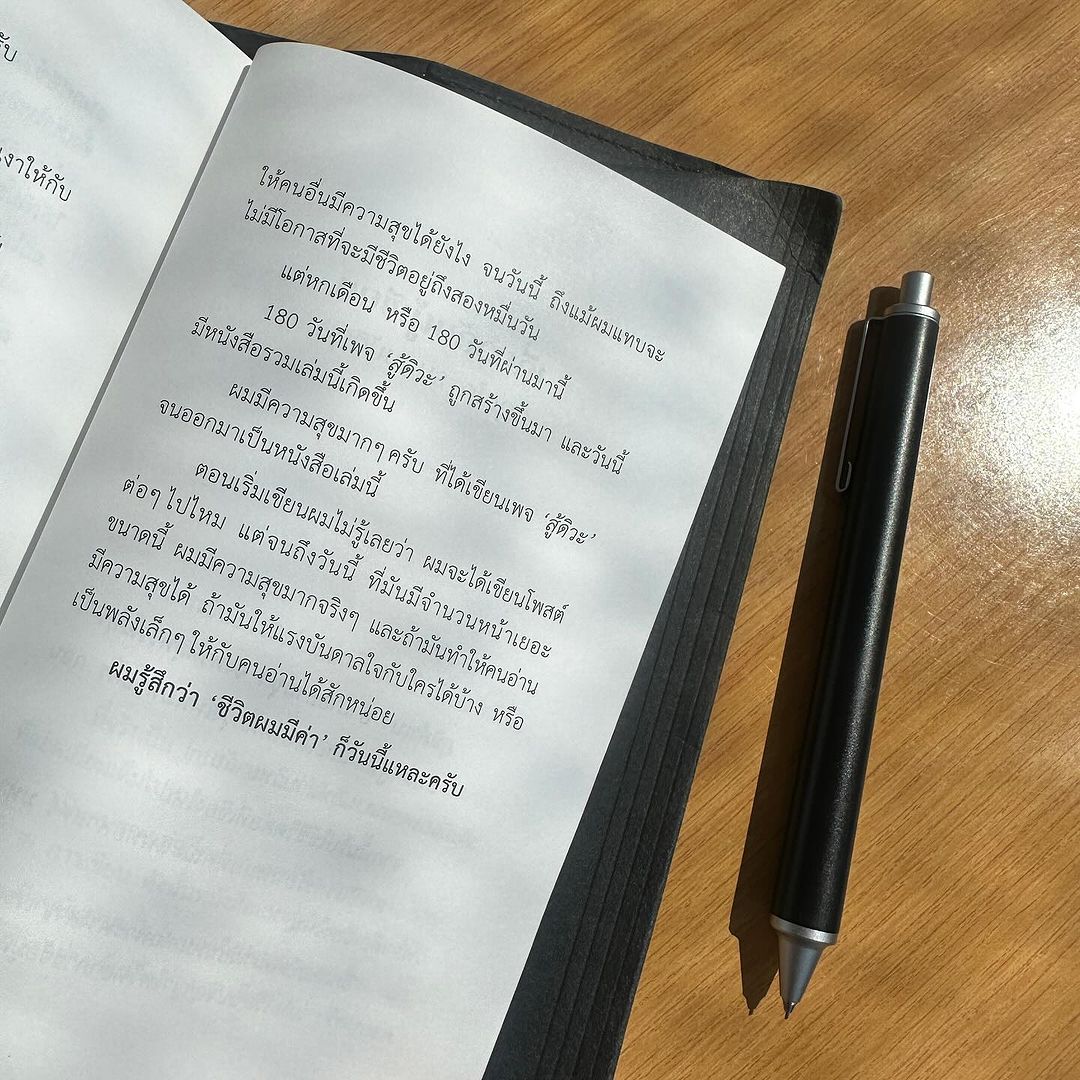 รับ
เงาให้กับ
ให้คนอื่นมีความสุขได้ยังไง จนวันนี้ ถึงแม้ผมแทบจะ
ไม่มีโอกาสที่จะมีชีวิตอยู่ถึงสองหมื่นวัน
แต่หกเดือน หรือ 180 วันที่ผ่านมานี้
180 วันที่เพจ ‘สู้ดิวะ’ ถูกสร้างขึ้นมา และวันนี้
มีหนังสือรวมเล่มนี้เกิดขึ้น
ผมมีความสุขมากๆ ครับ ที่ได้เขียนเพจ ‘สู้ดิวะ’
จนออกมาเป็นหนังสือเล่มนี้
ตอนเริ่มเขียนผมไม่รู้เลยว่า ผมจะได้เขียนโพสต์
ต่อๆ ไปไหม แต่จนถึงวันนี้ ที่มันมีจำนวนหน้าเยอะ
ขนาดนี้ ผมมีความสุขมากจริงๆ และถ้ามันทำให้คนอ่าน
มีความสุขได้ ถ้ามันให้แรงบันดาลใจกับใครได้บ้าง หรือ
เป็นพลังเล็กๆ ให้กับคนอ่านได้สักหน่อย
ผมรู้สึกว่า ‘ชีวิตผมมีค่า’ ก็วันนี้แหละครับ